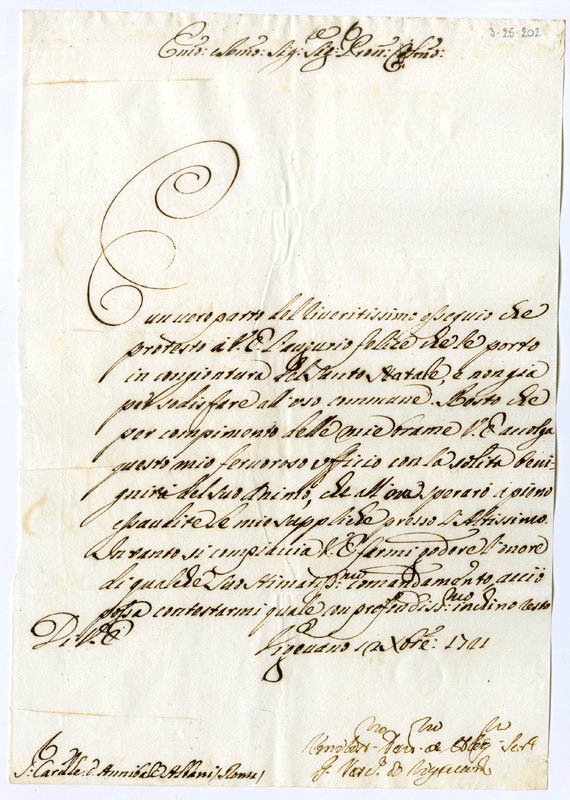 3-25-202
Emo: e Rmo: Sig: Sig: Prou: Colmo:
È un vero parto del riveritissimo ossequio che
protesto à V.E. l'augurio felice che le porto
in congiontura del Santo Natale, e non già
per sodisfare all'uso commune. Resto che
per compimento delle mie brame V.E. accolga
questo mio fervoroso officio con la solita beni-
gnità del suo animo, che all'ora sperarò a pieno
esaudite le mie suppliche presso l'Altissimo.
Intanto si compiaccia V.E. farmi godere l'onore
di qualche suo stimatis:mo comandamento, acciò
possa contestarmi quale con profondiss:mo inchino resto
Di V.E.
Vigevano 12 Xbre: 1721
Sr: Cardle: d. Annibale Albani / Roma /